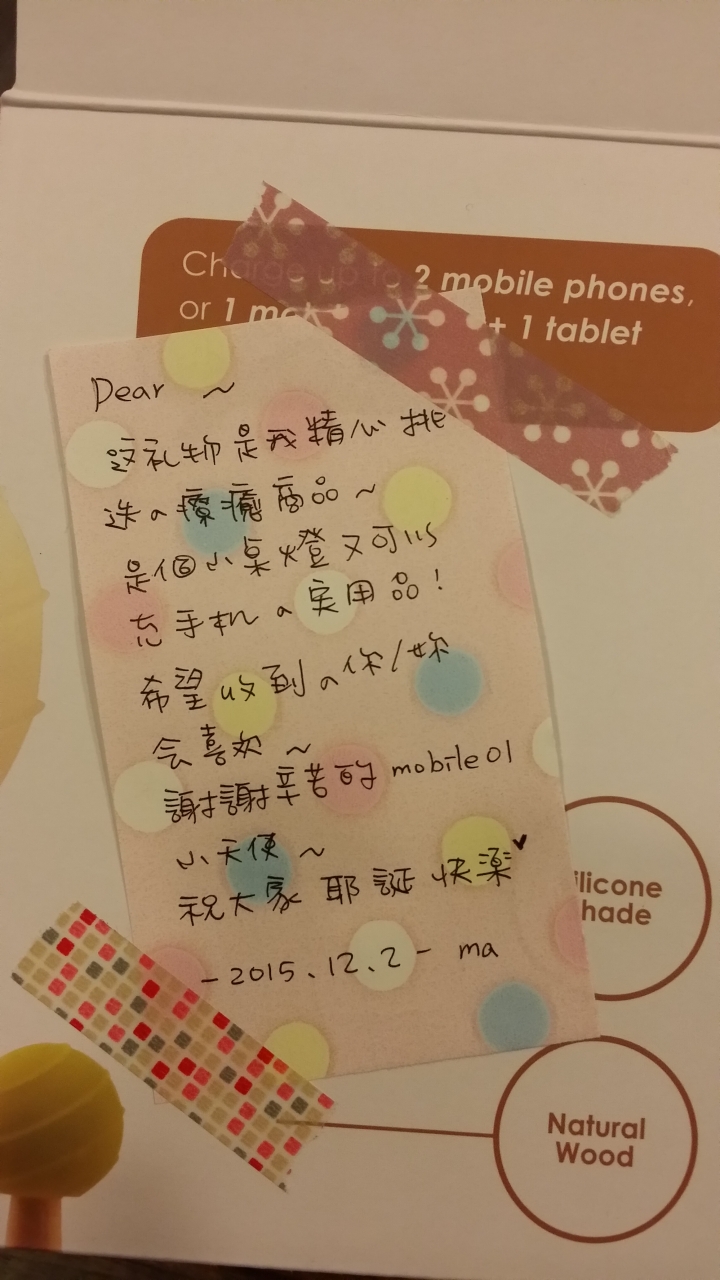 Charge up to 2 mobile phones,
or 1 + 1 tablet
Dear ~
这礼物是我精心挑
选の療癒商品~
是個小桌燈又可以
充手机の実用品!
希望收到の你/妳
会喜欢~
謝謝辛苦的 mobile01
小天使~
祝大家 耶誕 快楽♥
-2015.12.2- ma
ilicone
hade
Natural
Wood